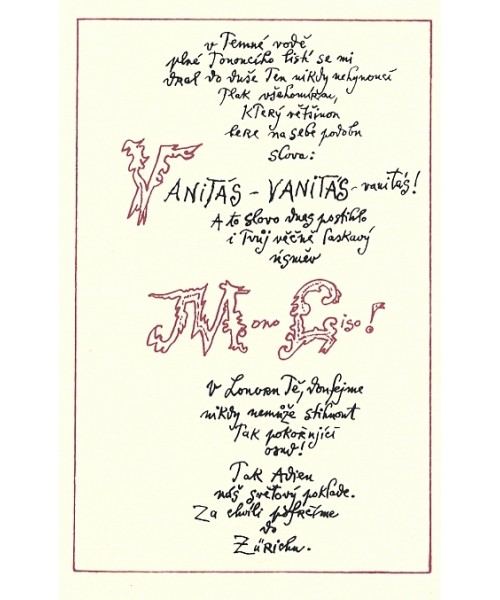 v Temné vodě
plné Tonoucího listí se mi
dral do duše Ten nikdy nehynoucí
Tlak všehomíra,
KTerý většinou
bere na sebe podobu
slova:
VANITÁS - VANITÁS - vanitás!
A to slovo dnes postihlo
i Tvůj věčně laskavý
úsměv
Mono Liso!
V Louvru Tě, doufejme
nikdy nemůže stihnout
Tak pokořující
osud!
Tak Adieu
náš světový poklade.
Za chvíli pofrčíme
do
Zürichu.